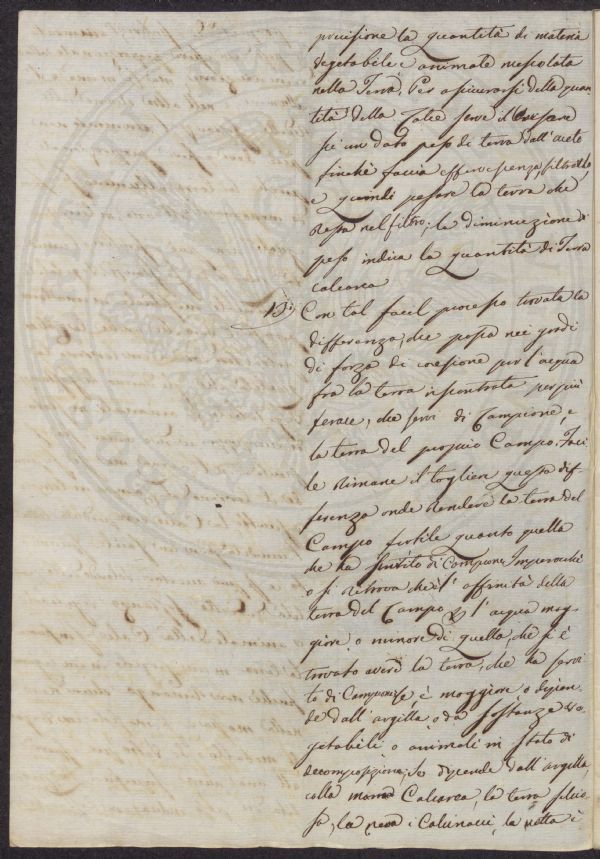 precisione la Quantità di materia
Vegetabile e animale mescolata
nella Terra. Per assicurarsi della quan
tità della Calce serve il Versare
su un dato peso di terra dell'aceto
finchè faccia effervescenza, filtrarlo,
e Quindi pesare la terra che
Resta nel filtro; la diminuzione di
peso indica la quantità di Terra
calcarea
13) Con tal facil processo trovata la
differenza, che passa nei gradi
di forza di coesione per l'acqua
fra la terra riscontrata per più
ferace, che servì di Campione, e
la terra del proprio Campo. Faci
le Rimane il togliere questa dif
ferenza onde Rendere la terra del
Campo fertile quanto quella
che ha servito di Campione. Imperocchè
o si Ritrova che l'affinità della
terra del Campo l'acqua mag
giore o minore di quella, che si è
trovato avere la terra, che ha servi
to di Campione è maggiore o dipen
de dall'argilla o da sostanze ve
getabili o animali in stato di
decomposizione; se dipende dall'argilla,
colla Calcarea, la terra silicio
sa, la i Calcinacci, la